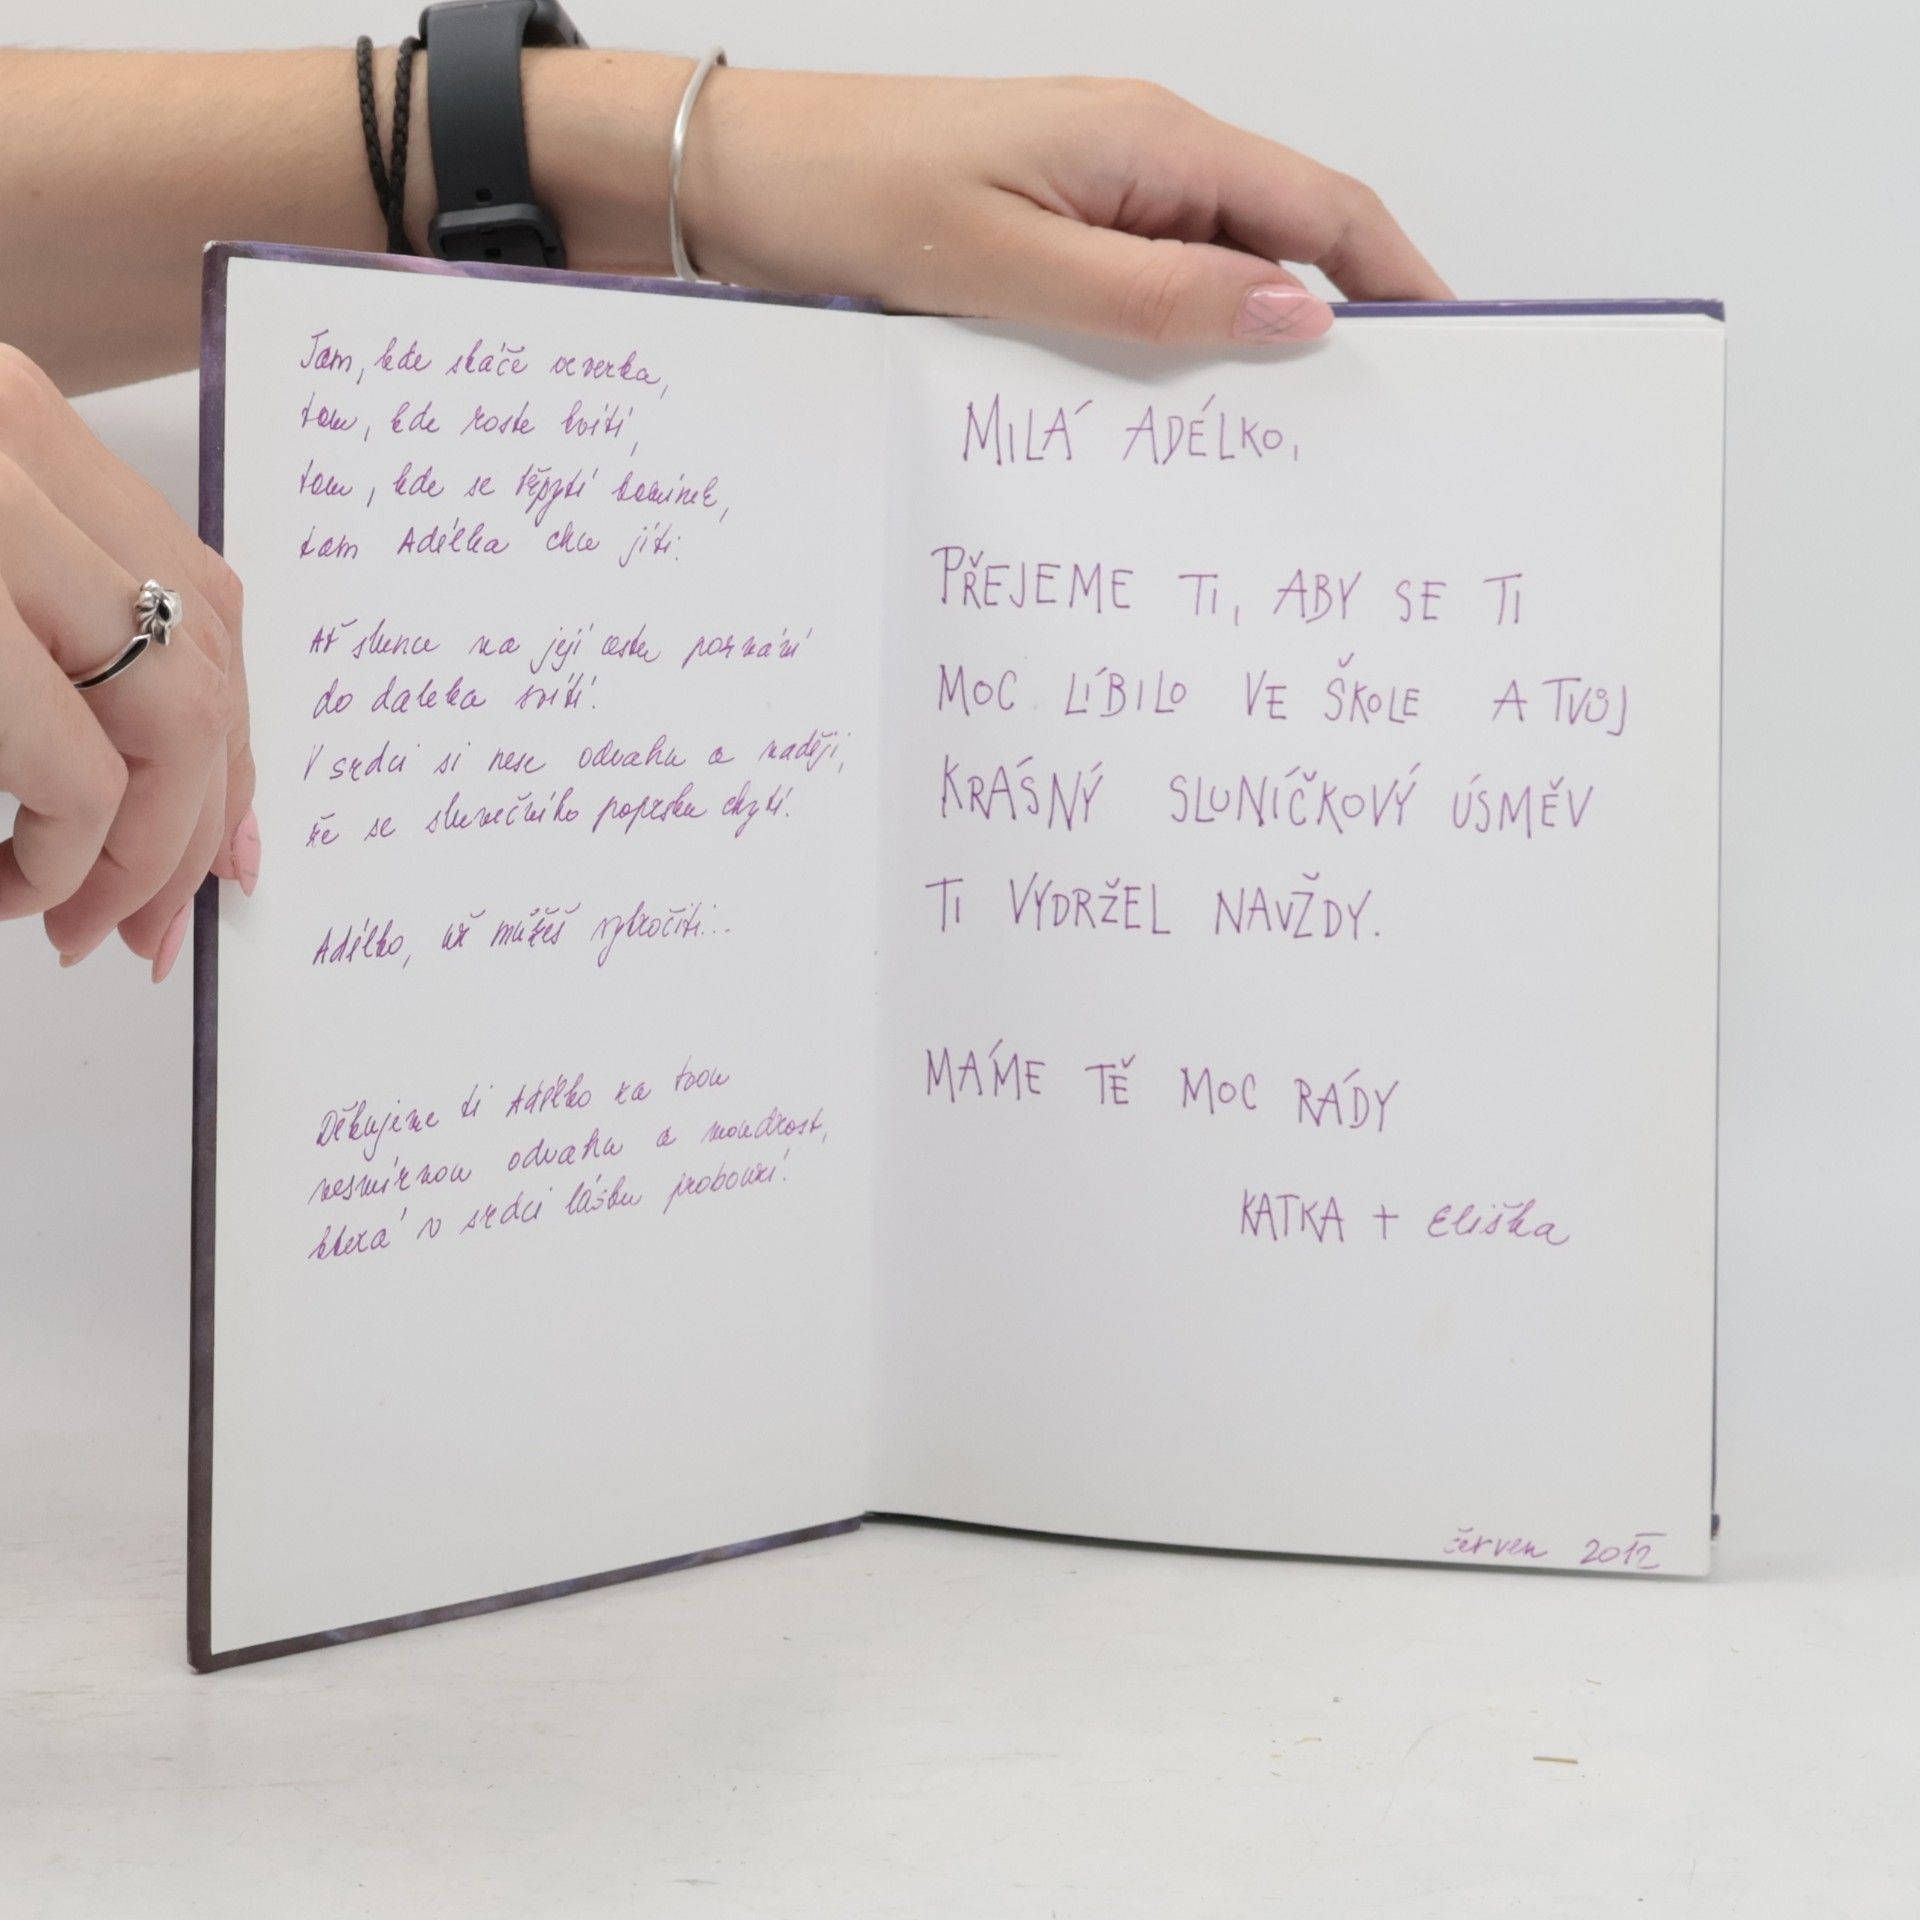 Tam, kde skáče veverka,
tam, kde roste kvítí,
tam, kde se třpytí kamínek,
tam Adélka chce jíti.
Ať slunce na její cestu poznání
do daleka svítí.
V srdci si nese odvahu a naději,
že se slunečního poprsku chytí.
Adélko, už můžeš vykročiti...
Děkujeme ti Adélko za tvou
nesmírnou odvahu a moudrost,
která v srdci lásku probouzí.
MILÁ ADÉLKO,
PŘEJEME TI, ABY SE TI
MOC LÍBILO VE ŠKOLE A TVŮJ
KRÁSNÝ SLUNÍČKOVÝ ÚSMĚV
TI VYDRŽEL NAVŽDY.
MÁME TĚ MOC RÁDY
KATKA + Eliška
červen 2012